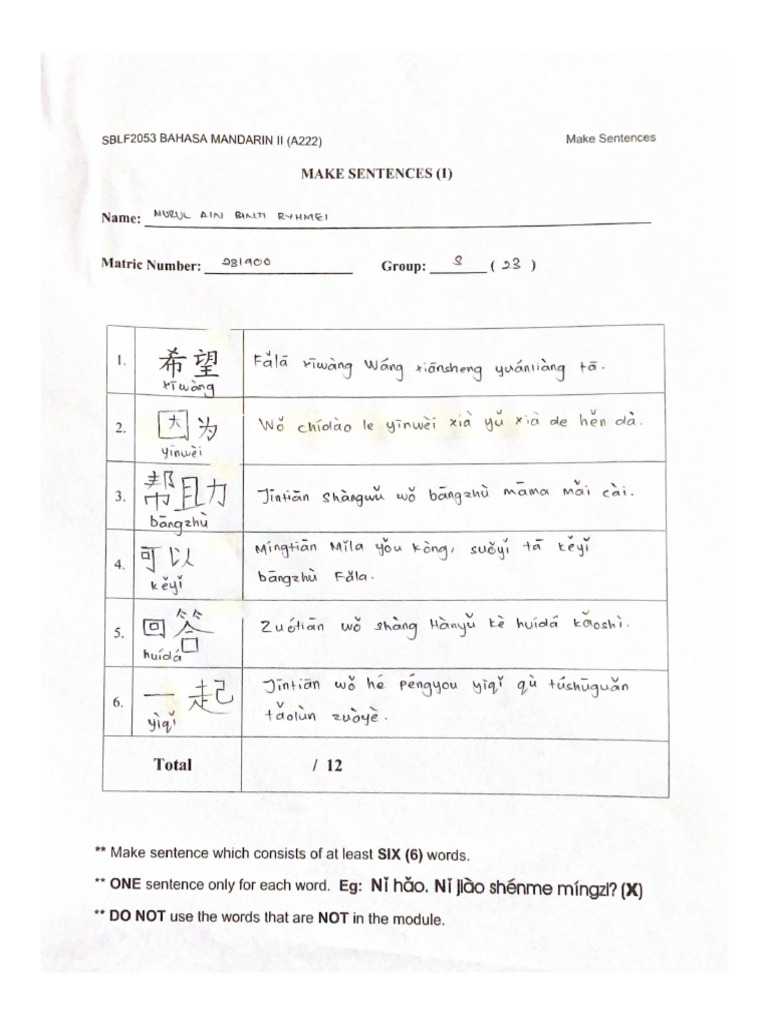 SBLF2053 BAHASA MANDARIN II (A222) Make Sentences
MAKE SENTENCES (I)
Name: NURUL AIN BINTI RYHMEI
Matric Number: 281900 Group: S ( 23 )
1. 希望 Fǎlā rīwàng Wáng xiānsheng yuánliàng tā.
rīwàng
2. 因为 Wǒ chídào le yīnwèi xià yǔ xià de hěn dà.
yīnwèi
3. 帮助 Jīntiān shàngwǔ wǒ bāngzhù māma mǎi cài.
bāngzhù
4. 可以 Míngtiān Mǐla yǒu kòng, suǒyǐ tā kěyǐ
kěyǐ bāngzhù Fǎla.
5. 回答 Zuótiān wǒ shàng Hànyǔ kè huídá kǎoshì.
huídá
6. 一起 Jīntiān wǒ hé péngyou yìqǐ qù túshūguǎn
yìqǐ tǎolùn zuòyè.
Total / 12
** Make sentence which consists of at least SIX (6) words.
** ONE sentence only for each word. Eg: Nǐ hǎo. Nǐ jiào shénme míngzi? (X)
** DO NOT use the words that are NOT in the module.